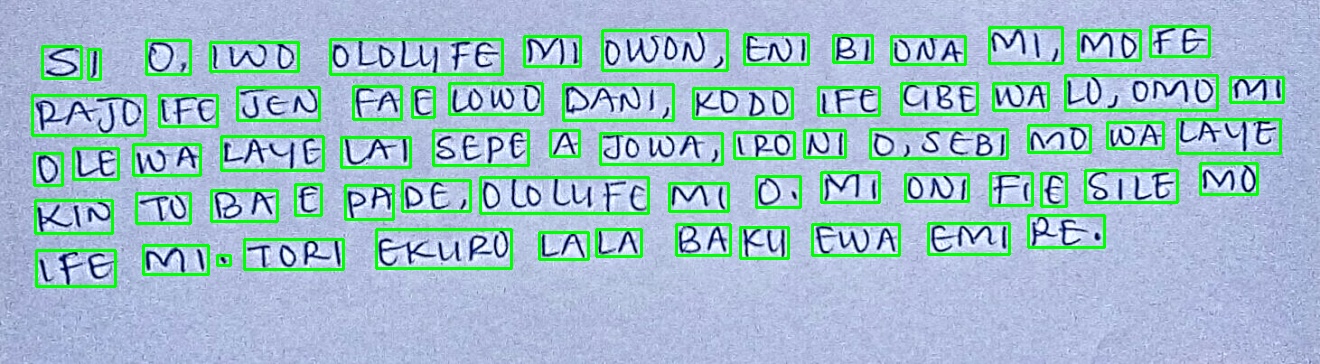 SI O, IWO OLOLUFE MI OWON, ENI BI ONA MI, MO FE
RAJO IFE JEN FA E LOWO DANI, KODO IFE GBE WA LO, OMO MI
O LE WA LAYE LAI SEPE A JOWA, IRO NI O, SEBI MO WA LAYE
KIN TO BA E PADE, OLOLUFE MI O. MI ONI FI E SILE MO
IFE MI. TORI EKURO LALA BAKU EWA EMI RE.